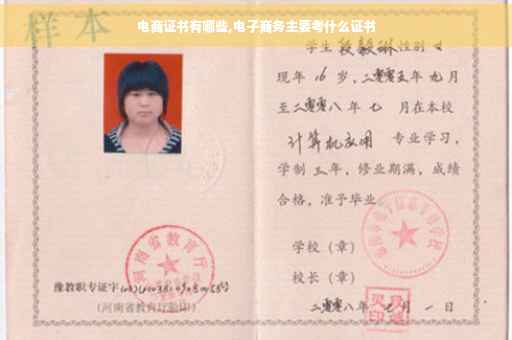 电商证书有哪些,电子商务主要考什么证书
样本
学生 段毅琳 性别 女
现年 16 岁,二零零五年 九 月
至二零零八 年 七 月在本校
计算机应用 专业学习,
学制 三 年,修业期满,成绩
合格,准予毕业
学校(章)
校长(章)
二零零八年 七 月 一 日
河南省教育厅
豫教职专证字
(河南省教育厅验印)